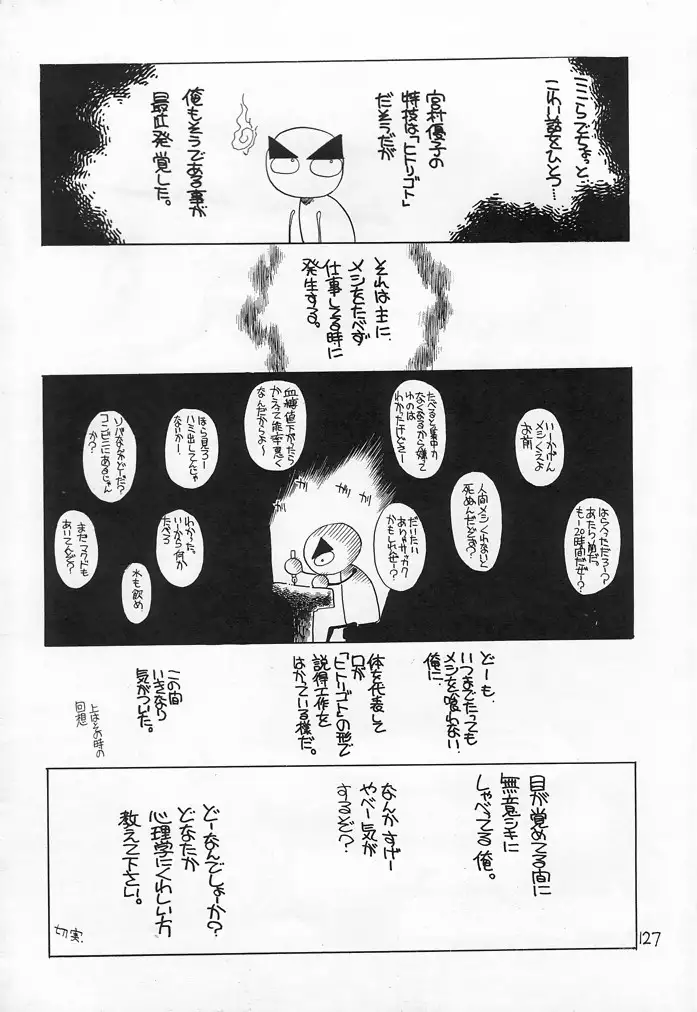 ここらでちょっと
こわい話をひとつ…
宮村優子の
特技は、「ヒトリゴト」
だそうだが
俺もそうである事が
最近発覚した。
それは主に、
メシをたべず
仕事してる時に
発生する。
いーかげん
メシくえよ
お前
たべると集中力
なくなるから嫌て
ゆのは
わかったけどさー
血糖値下がったら
かえって能率悪く
なんだからよ〜
ほら見ろー
ハミ出してんじゃ
ないかー、
ソバなんかどーだ?
コンビニにあるじゃん
か?
はらへったろー?
あたりめだ。
もー20時間だぜー?
人間メシくわないと
死ぬんだとぉ?
だいたい
ありゃサッカク
かもしれねー?
ギッ
ギッ
ギッ
わかった。
いーから何か
たべろ
水も飲め
まだマクドも
あいてんぞ?
どーも、
いつまでたっても
メシを喰わない
俺に、
体を代表して
口が
「ヒトリゴト」の形で
説得工作を
はかている様だ。
この間
いきなり
気がついた。
上はその時の
回想
目が覚めてる間に
無意シキに
しゃべってる俺。
なんかすげー
やべー気が
するぞ?
どーなんでしょーか?
どなたか
心理学にくわしい方
教えて下さい。
切実.
127